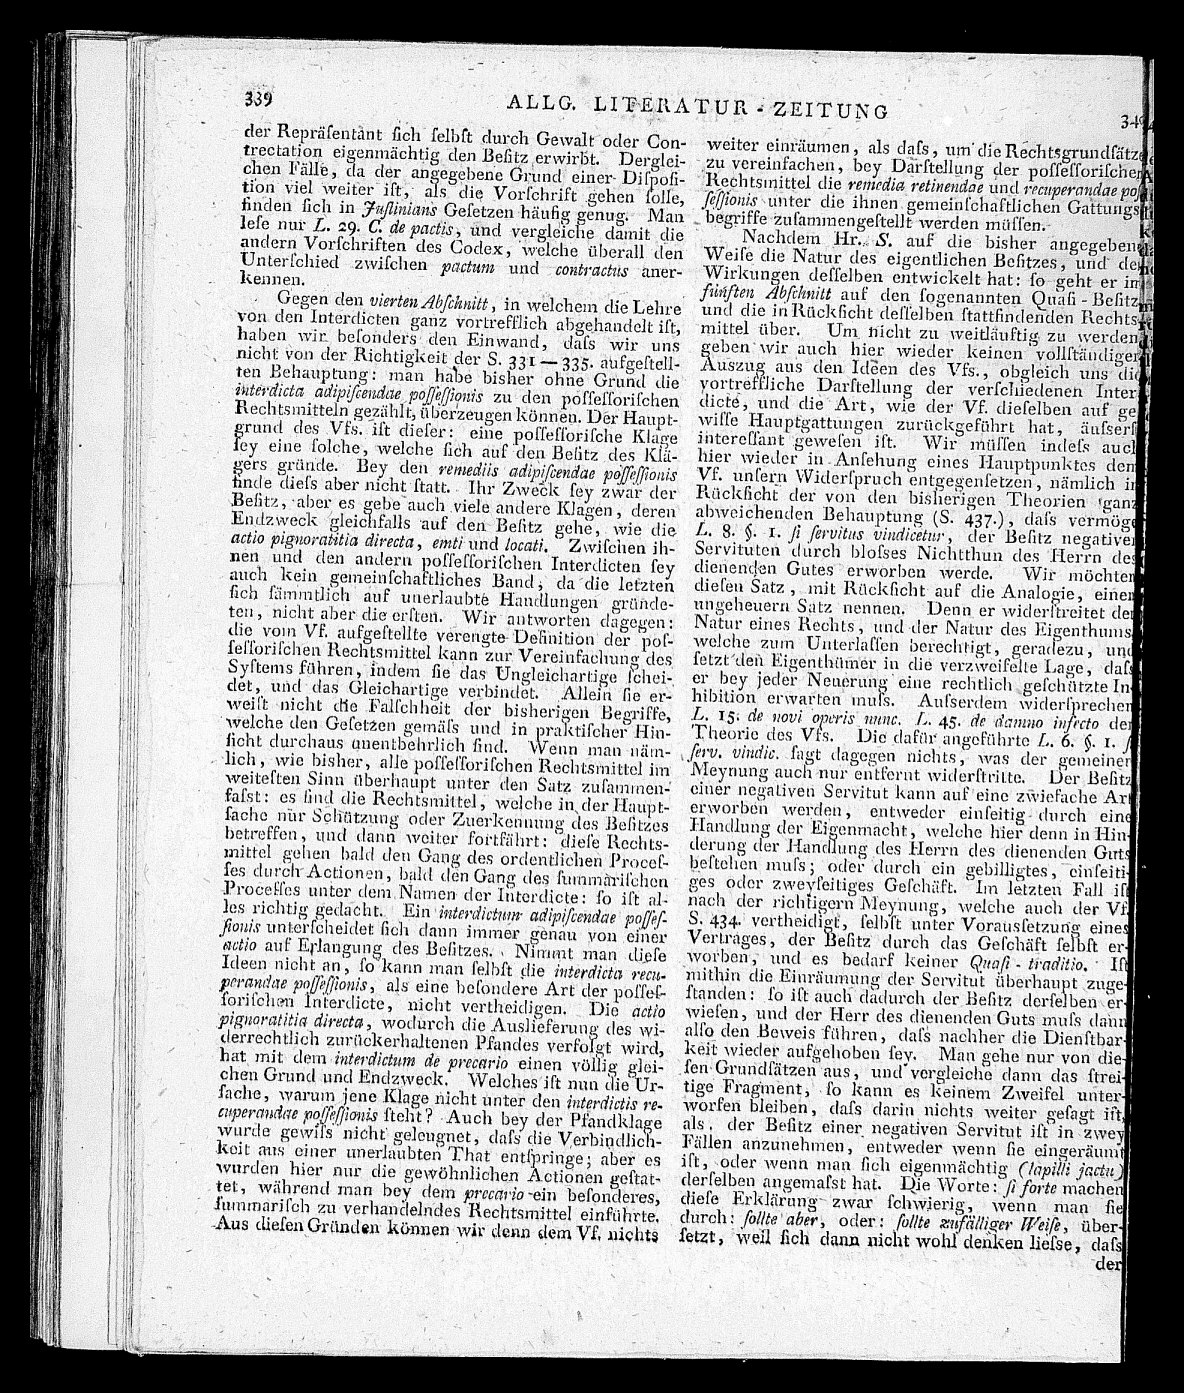 339
ALLG. LITERATUR-ZEITUNG
34
der Repräſentant ſich ſelbſt durch Gewalt oder Con-
trectation eigenmächtig den Beſitz erwirbt. Derglei-
chen Fälle, da der angegebene Grund einer Diſpoſi-
tion viel weiter iſt, als die Vorſchrift gehen ſolle,
finden ſich in Juſtinians Geſetzen häufig genug. Man
leſe nur L. 29. C. de pactis, und vergleiche damit die
andern Vorſchriften des Codex, welche überall den
Unterſchied zwiſchen pactum und contractus aner-
kennen.
Gegen den vierten Abſchnitt, in welchem die Lehre
von den Interdicten ganz vortrefflich abgehandelt iſt,
haben wir beſonders den Einwand, daſs wir uns
nicht von der Richtigkeit der S. 331—335. aufgeſtell-
ten Behauptung: man habe bisher ohne Grund die
interdicta adipiſcendae poſſeſſionis zu den poſſeſſoriſchen
Rechtsmitteln gezählt, überzeugen können. Der Haupt-
grund des Vfs. iſt dieſer: eine poſſeſſoriſche Klage
ſey eine ſolche, welche ſich auf den Beſitz des Klä-
gers gründe. Bey den remediis adipiſcendae poſſeſſionis
finde dieſs aber nicht ſtatt. Ihr Zweck ſey zwar der
Beſitz, aber es gebe auch viele andere Klagen, deren
Endzweck gleichfalls auf den Beſitz gehe, wie die
actio pignoratitia directa, emti und locati. Zwiſchen ih-
nen und den andern poſſeſſoriſchen Interdicten ſey
auch kein gemeinſchaftliches Band, da die letzten
ſich ſämmtlich auf unerlaubte Handlungen gründe-
ten, nicht aber die erſten. Wir antworten dagegen:
die vom Vf. aufgeſtellte verengte Definition der poſ-
ſeſſoriſchen Rechtsmittel kann zur Vereinfachung des
Syſtems führen, indem ſie das Ungleichartige ſchei-
det, und das Gleichartige verbindet. Allein ſie er-
weiſt nicht die Falſchheit der bisherigen Begriffe,
welche den Geſetzen gemäſs und in praktiſcher Hin-
ſicht durchaus unentbehrlich ſind. Wenn man näm-
lich, wie bisher, alle poſſeſſoriſchen Rechtsmittel im
weiteſten Sinn überhaupt unter den Satz zuſammen-
faſst: es ſind die Rechtsmittel, welche in der Haupt-
ſache nur Schützung oder Zuerkennung des Beſitzes
betreffen, und dann weiter fortfährt: dieſe Rechts-
mittel gehen bald den Gang des ordentlichen Proceſ-
ſes durch Actionen, bald den Gang des ſummariſchen
Proceſſes unter dem Namen der Interdicte: ſo iſt al-
les richtig gedacht. Ein interdictum adipiſcendae poſſeſ-
ſionis unterſcheidet ſich dann immer genau von einer
actio auf Erlangung des Beſitzes. Nimmt man dieſe
Ideen nicht an, ſo kann man ſelbſt die interdicta recu-
perandae poſſeſſionis, als eine beſondere Art der poſſeſ-
ſoriſchen Interdicte, nicht vertheidigen. Die actio
pignoratitia directa, wodurch die Auslieferung des wi-
derrechtlich zurückerhaltenen Pfandes verfolgt wird,
hat mit dem interdictum de precario einen völlig glei-
chen Grund und Endzweck. Welches iſt nun die Ur-
ſache, warum jene Klage nicht unter den interdictis re-
cuperandae poſſeſſionis ſteht? Auch bey der Pfandklage
wurde gewiſs nicht geleugnet, daſs die Verbindlich-
keit aus einer unerlaubten That entſpringe; aber es
wurden hier nur die gewöhnlichen Actionen geſtat-
tet, während man bey dem precario ein beſonderes,
ſummariſch zu verhandelndes Rechtsmittel einführte.
Aus dieſen Gründen können wir denn dem Vf. nichts
weiter einräumen, als daſs, um die Rechtsgrundſätze
zu vereinfachen, bey Darſtellung der poſſeſſoriſchen
Rechtsmittel die remedia retinendae und recuperandae poſ-
ſeſſionis unter die ihnen gemeinſchaftlichen Gattungs-
begriffe zuſammengeſtellt werden müſſen.
Nachdem Hr. S. auf die bisher angegebene
Weiſe die Natur des eigentlichen Beſitzes, und der
Wirkungen deſſelben entwickelt hat: ſo geht er im
fünften Abſchnitt auf den ſogenannten Quaſi-Beſitz
und die in Rückſicht deſſelben ſtattfindenden Rechts-
mittel über. Um nicht zu weitläuftig zu werden,
geben wir auch hier wieder keinen vollſtändigen
Auszug aus den Ideen des Vfs., obgleich uns die
vortreffliche Darſtellung der verſchiedenen Inter-
dicte, und die Art, wie der Vf. dieſelben auf ge-
wiſſe Hauptgattungen zurückgeführt hat, äuſserſt
intereſſant geweſen iſt. Wir müſſen indeſs auch
hier wieder in Anſehung eines Hauptpunktes dem
Vf. unſern Widerſpruch entgegenſetzen, nämlich in
Rückſicht der von den bisherigen Theorien ganz
abweichenden Behauptung (S. 437.), daſs vermöge
L. 8. §. 1. ſi ſervitus vindicetur, der Beſitz negativer
Servituten durch bloſses Nichtthun des Herrn des
dienenden Gutes erworben werde. Wir möchten
dieſen Satz, mit Rückſicht auf die Analogie, einen
ungeheuern Satz nennen. Denn er widerſtreitet der
Natur eines Rechts, und der Natur des Eigenthums,
welche zum Unterlaſſen berechtigt, geradezu, und
ſetzt den Eigenthümer in die verzweifelte Lage, daſs
er bey jeder Neuerung eine rechtlich geſchützte In-
hibition erwarten muſs. Auſserdem widerſprechen
L. 15. de novi operis nunc. L. 45. de damno infecto der
Theorie des Vfs. Die dafür angeführte L. 6. §. 1. ſ
ſerv. vindic. ſagt dagegen nichts, was der gemeinen
Meynung auch nur entfernt widerſtritte. Der Beſitz
einer negativen Servitut kann auf eine zwiefache Art
erworben werden, entweder einſeitig durch eine
Handlung der Eigenmacht, welche hier denn in Hin-
derung der Handlung des Herrn des dienenden Guts
beſtehen muſs; oder durch ein gebilligtes, einſeiti-
ges oder zweyſeitiges Geſchäft. Im letzten Fall iſt
nach der richtigern Meynung, welche auch der Vf.
S. 434. vertheidigt, ſelbſt unter Vorausſetzung eines
Vertrages, der Beſitz durch das Geſchäft ſelbſt er-
worben, und es bedarf keiner Quaſi-traditio. Iſt
mithin die Einräumung der Servitut überhaupt zuge-
ſtanden: ſo iſt auch dadurch der Beſitz derſelben er-
wieſen, und der Herr des dienenden Guts muſs dann
alſo den Beweis führen, daſs nachher die Dienſtbar-
keit wieder aufgehoben ſey. Man gehe nur von die-
ſen Grundſätzen aus, und vergleiche dann das ſtrei-
tige Fragment, ſo kann es keinem Zweifel unter-
worfen bleiben, daſs darin nichts weiter geſagt iſt,
als, der Beſitz einer negativen Servitut iſt in zwey
Fällen anzunehmen, entweder wenn ſie eingeräumt
iſt, oder wenn man ſich eigenmächtig (lapilli jactu)
derſelben angemaſst hat. Die Worte: ſi forte machen
dieſe Erklärung zwar ſchwierig, wenn man ſie
durch: ſollte aber, oder: ſollte zufälliger Weiſe, über-
ſetzt, weil ſich dann nicht wohl denken lieſse, daſs
der